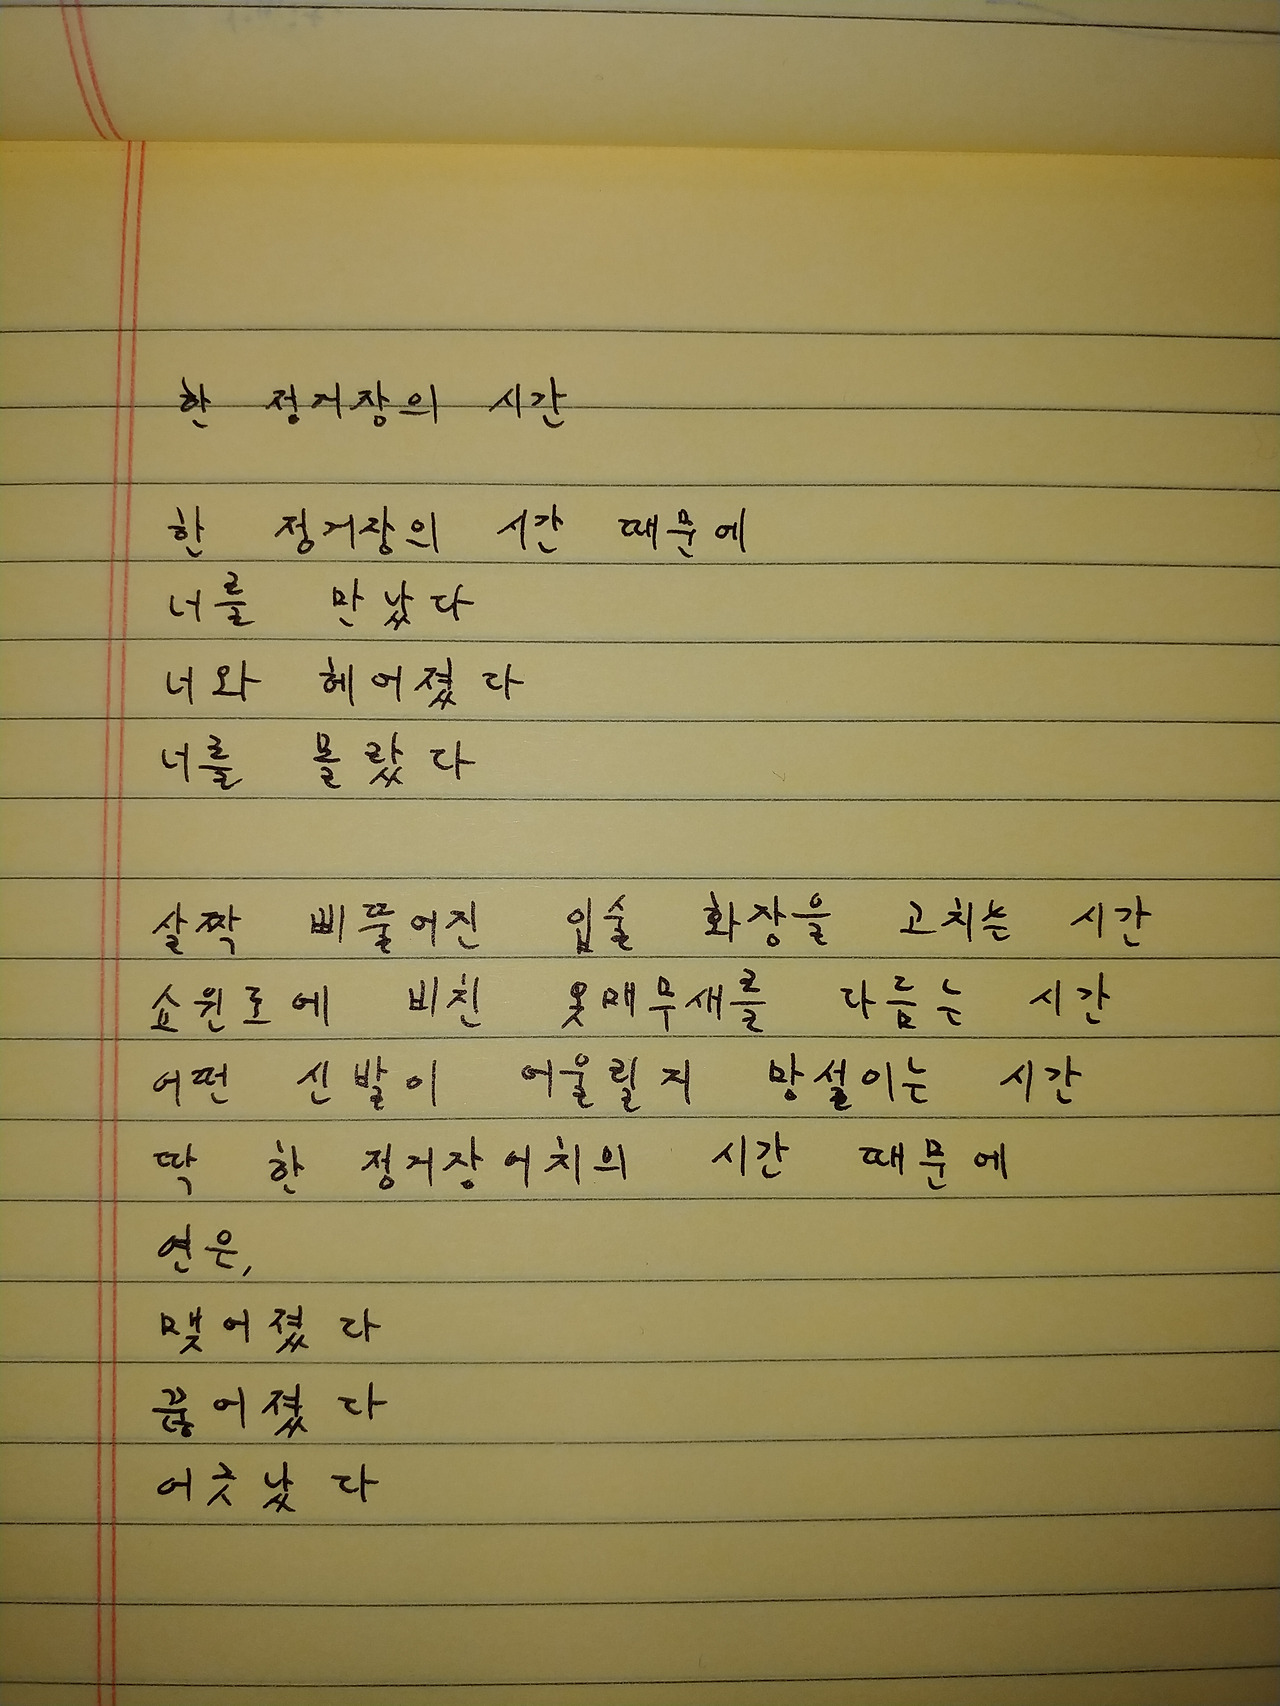 한 정거장의 시간
한 정거장의 시간 때문에
너를 만났다
너와 헤어졌다
너를 몰랐다
살짝 삐뚤어진 입술 화장을 고치는 시간
쇼윈도에 비친 옷매무새를 다듬는 시간
어떤 신발이 어울릴지 망설이는 시간
딱 한 정거장어치의 시간 때문에
연은,
맺어졌다
끊어졌다
어긋났다